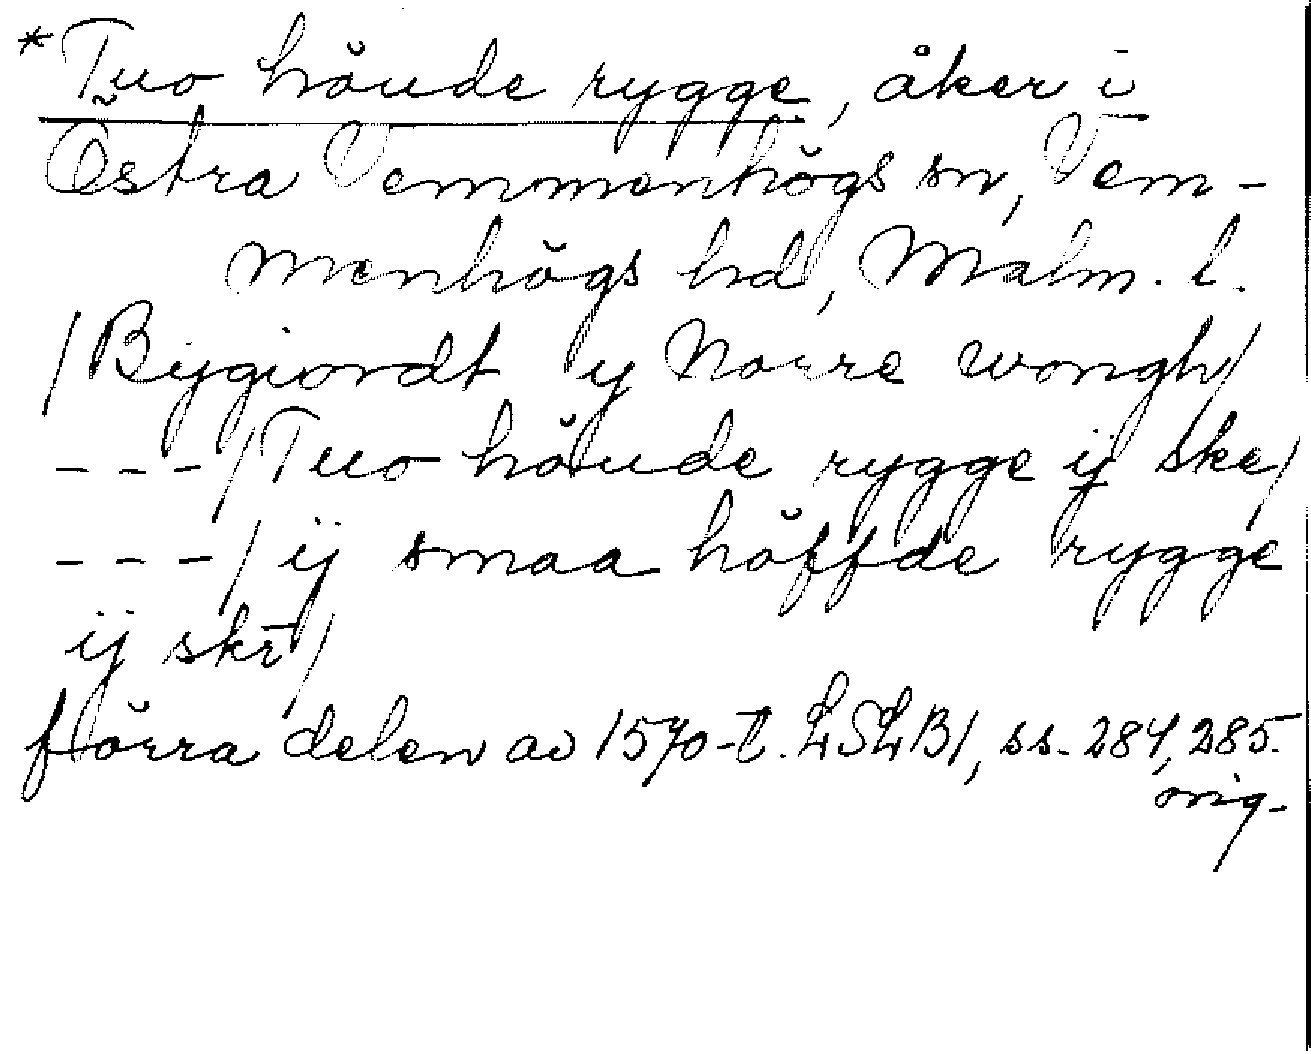 *Tuo höude rygge, åker i
Östra Vemmenhögs sn, Vem-
menhögs hd, Malm. l.
/Bygiordt y Norre wongh/
---/Tuo höude rygge ij ske/
---/ij smaa höffde rygge
ij skr/
förra delen av 1570-t. LSLB1, ss. 284, 285.
orig.